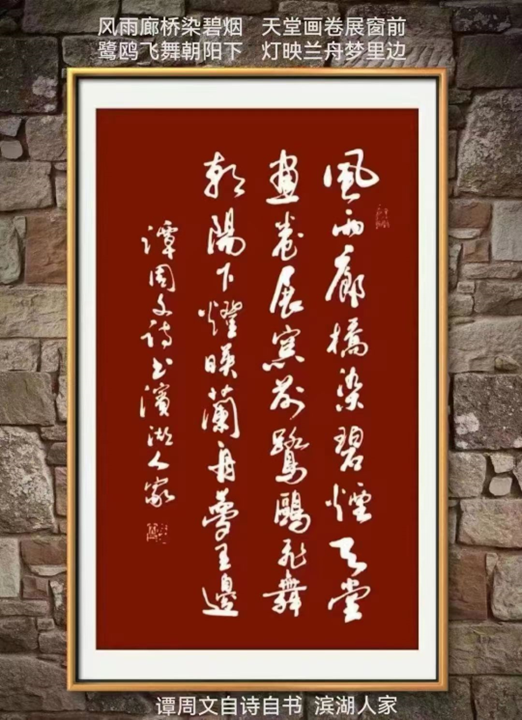 风雨廊桥染碧烟　天堂画卷展窗前
鹭鸥飞舞朝阳下　灯映兰舟梦里边
風雨廊橋染碧煙天堂
畫卷展窯前鷺鷗飛舞
朝陽下燈映蘭舟夢里邊
譚周文詩書濱湖人家
谭周文自诗自书 滨湖人家